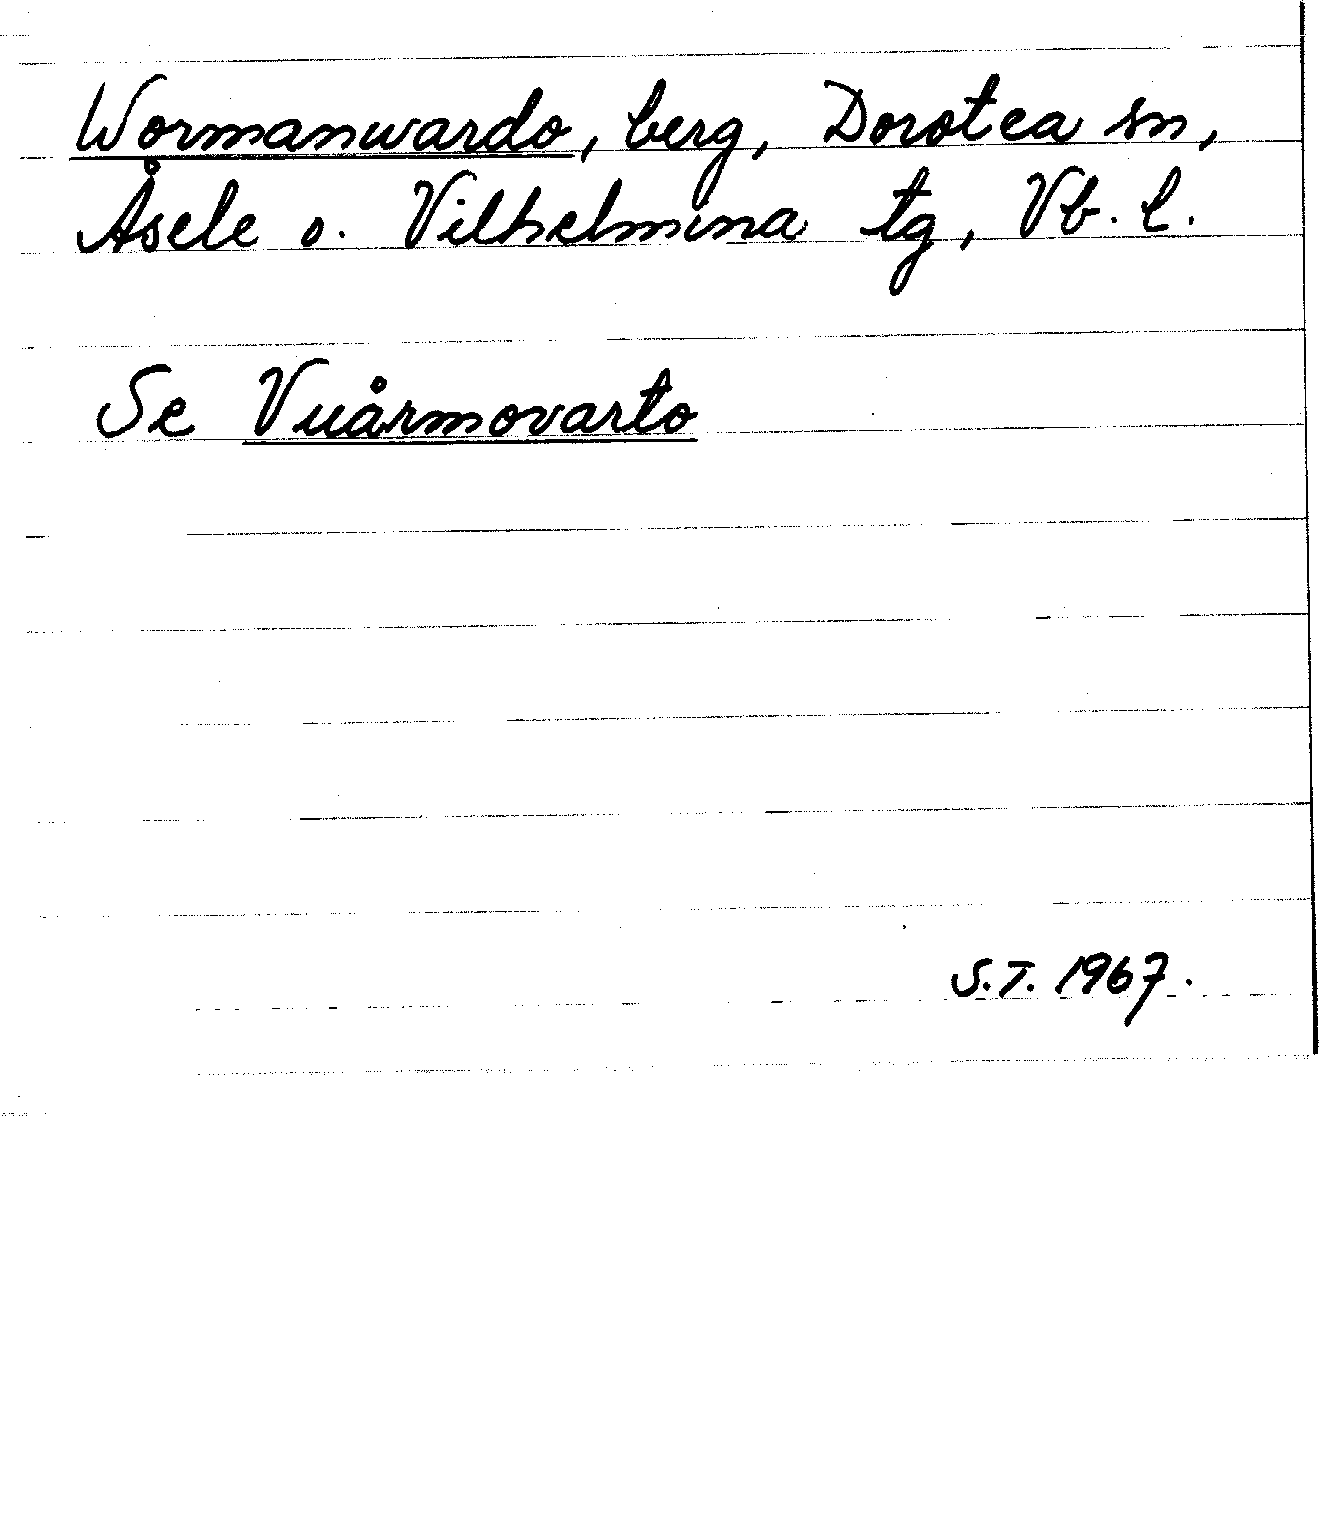 Wormanwardo, berg, Dorotea sn,
Åsele o. Vilhelmina tg, Vb. l.
Se Vuårmovarto
S.T. 1967.